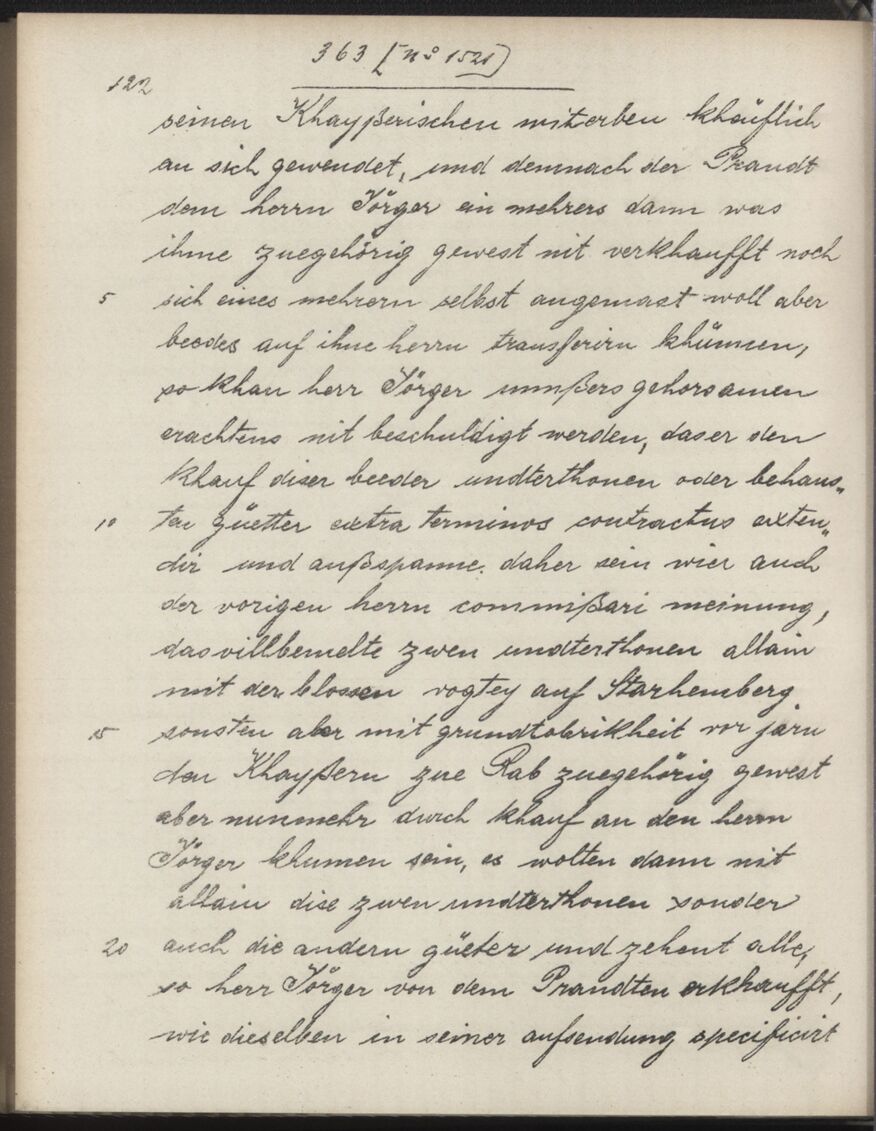 363 [No 1521)
122
seinen Khayßerischen miterben khäuflich
an sich gewendet, und demnach der Prandt
dem herrn Jörger ein mehrers dann was
ihme zuegehörig gewest nit verkhaufft noch
5 sich eines mehrern selbst angemast woll aber
beedes auf ihne herrn transferirn khümen,
so khan herr Jörger unnßers gehorsamen
erachtens nit beschuldigt werden, das er den
khauf diser beeder undterthonen oder behaus„
10 ten güetter extra terminos contractus exten„
dir und außspanne. daher sein wier auch
der vorigen herrn commißari meinung,
das villbemelte zwen undterthonen allain
mit der blossen vogtey auf Starhemberg
15 sonsten aber mit grundtobrikheit vor jarn
den Khayßern zue Rab zuegehörig gewest
aber nunmehr durch khauf an den herrn
Jörger khumen sein, es wolten dann nit
allain dise zwen undterthonen sonder
20 auch die andern güeter und zehent alle,
so herr Jörger von dem Prandten erkhaufft,
wie dieselben in seiner aufsendung specificirt